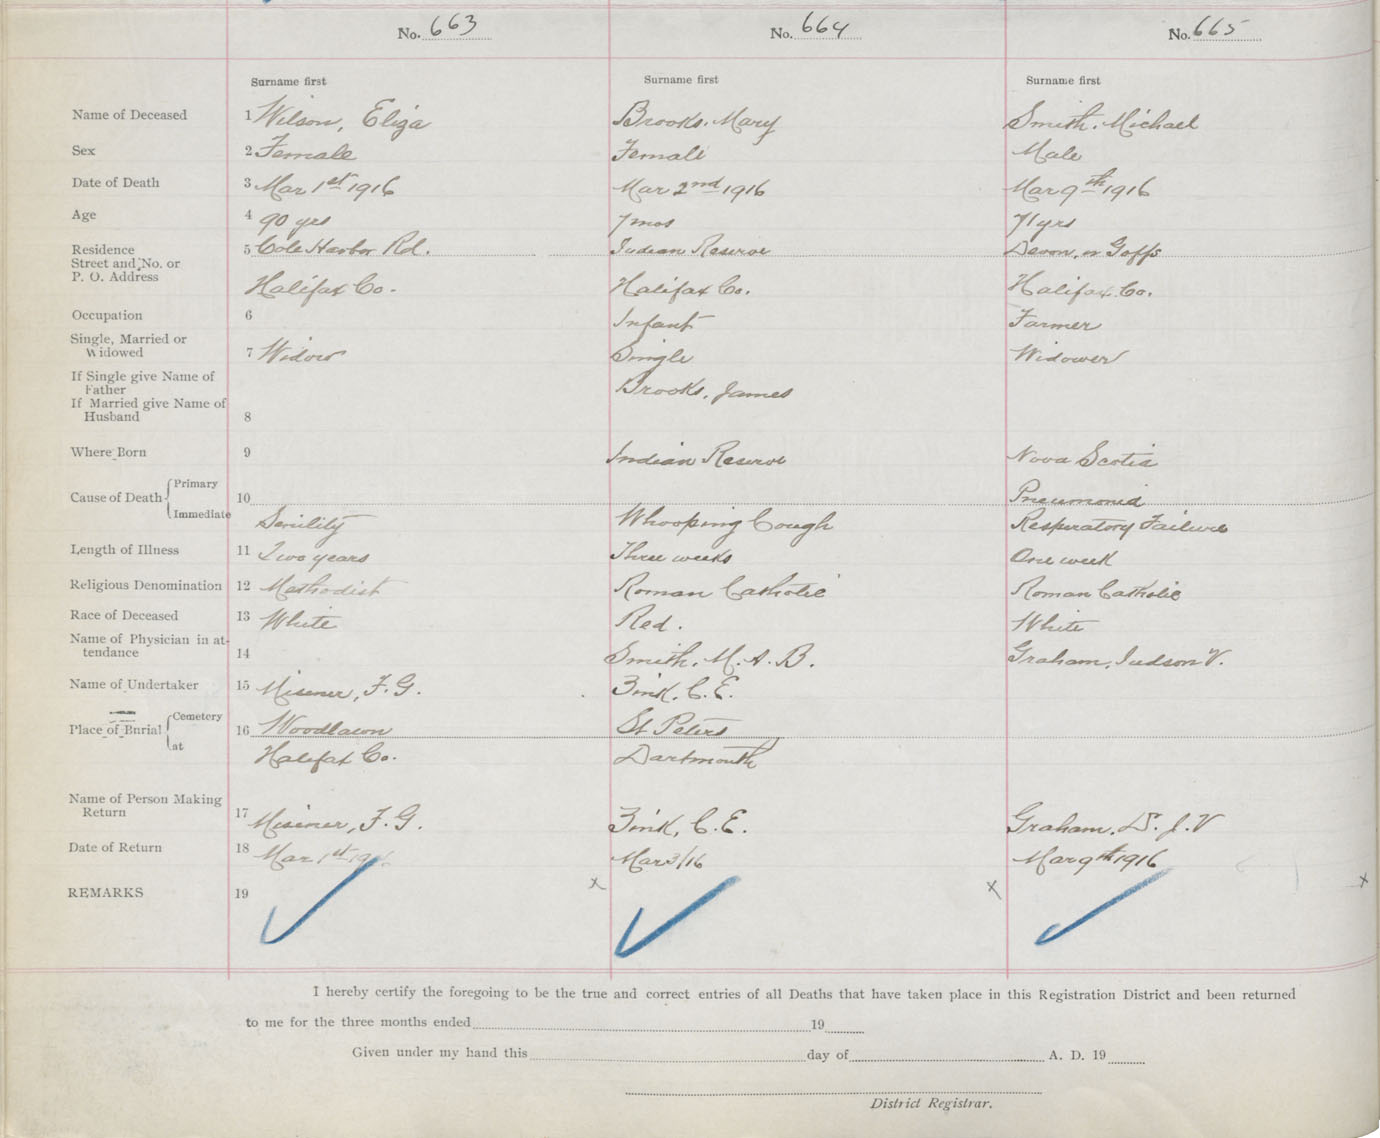 No. 663 No. 664 No. 665
Surname first Surname first Surname first
Name of Deceased 1 Wilson, Eliza Brooks, Mary Smith, Michael
Sex 2 Female Female Male
Date of Death 3 Mar 1st 1916 Mar 2nd 1916 Mar 9th 1916
Age 4 90 yrs 7 mos 71 yrs
Residence 5 Cole Harbor Rd. Indian Reserve Devon, or Goffs
Street and No. or
P. O. Address Halifax Co. Halifax Co. Halifax Co.
Occupation 6 Infant Farmer
Single, Married or
Widowed 7 Widow Single Widower
If Single give Name of
Father Brooks, James
If Married give Name of
Husband 8
Where Born 9 Indian Reserve Nova Scotia
Cause of Death Primary 10 Pneumonia
Immediate Senility Whooping Cough Respiratory Failure
Length of Illness 11 Two years Three weeks One week
Religious Denomination 12 Methodist Roman Catholic Roman Catholic
Race of Deceased 13 White Red. White
Name of Physician in at-
tendance 14 Smith, M. A. B. Graham, Judson V.
Name of Undertaker 15 Misener, F. G. Zink, C. E.
Place of Burial Cemetery 16 Woodlawn St Peters
at Halifax Co. Dartmouth
Name of Person Making
Return 17 Misener, F. G. Zink, C. E. Graham, D. J. V
Date of Return 18 Mar 1st Mar 3/16 Mar 9th 1916
REMARKS 19 x x x
I hereby certify the foregoing to be the true and correct entries of all Deaths that have taken place in this Registration District and been returned
to me for the three months ended 19
Given under my hand this day of A. D. 19
District Registrar.